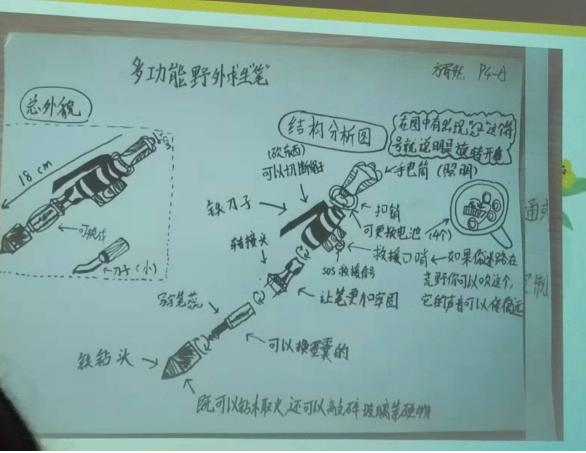 多功能野外求生笔
P4-A
总外貌
18cm
可拆卸
刀子(小)
结构分析图
在图中有出现"
号就说明是旋转开
(砍东西)
可以切断绳子
手电筒(照明)
铁刀子
扣锁
可更换电池(4个)
转接头
救援口哨
如果你迷路在
荒野你可以吹这个,
它的声音可以传很远
SOS救援信号
让笔更加牢固
可以换墨囊的
铁钻头
既可以钻木取火,还可以敲碎玻璃等硬物
通
制